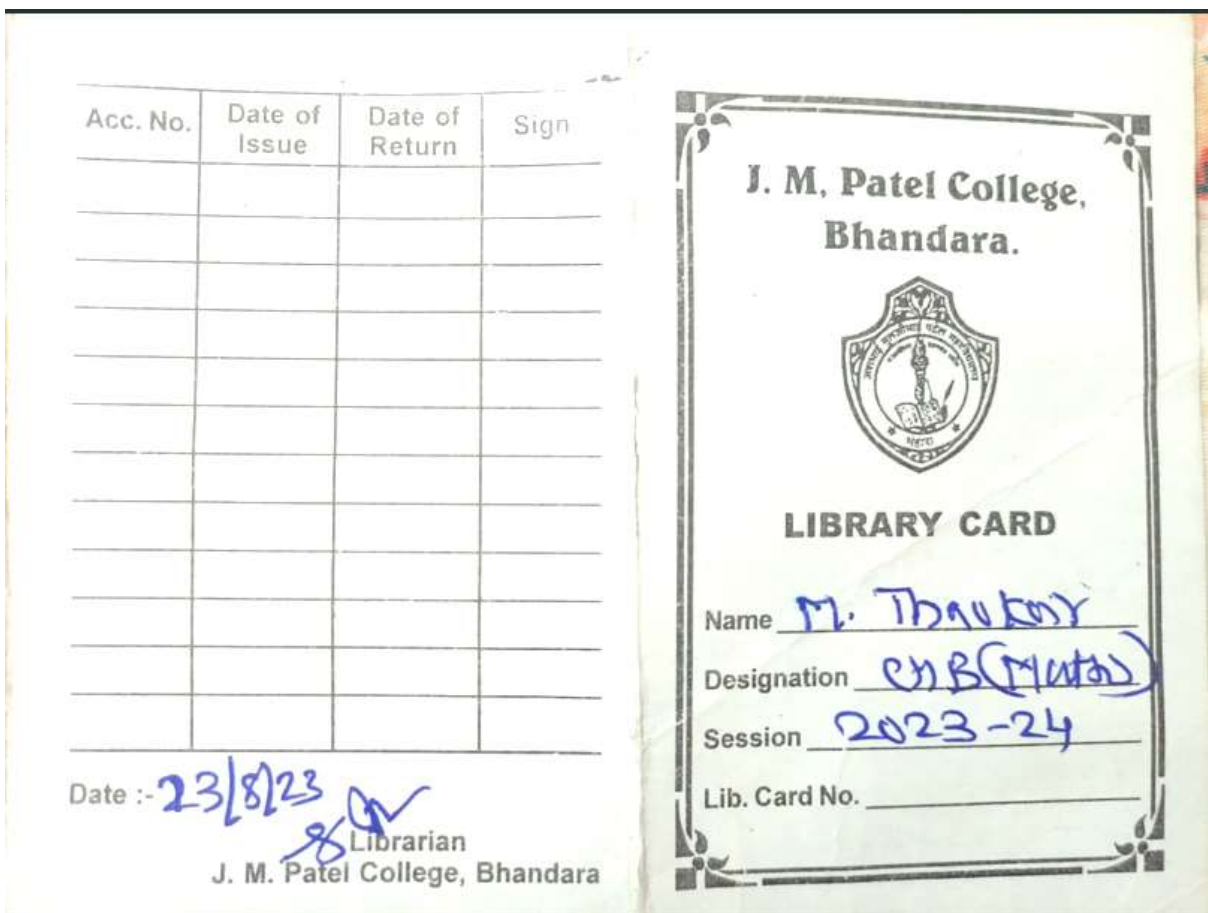 Acc. No. Date of Issue Date of Return Sign
Date :- 23/8/23
Librarian
J. M. Patel College, Bhandara
J. M, Patel College,
Bhandara.
भंडारा
LIBRARY CARD
Name M.
Designation CHB (Maths)
Session 2023-24
Lib. Card No.